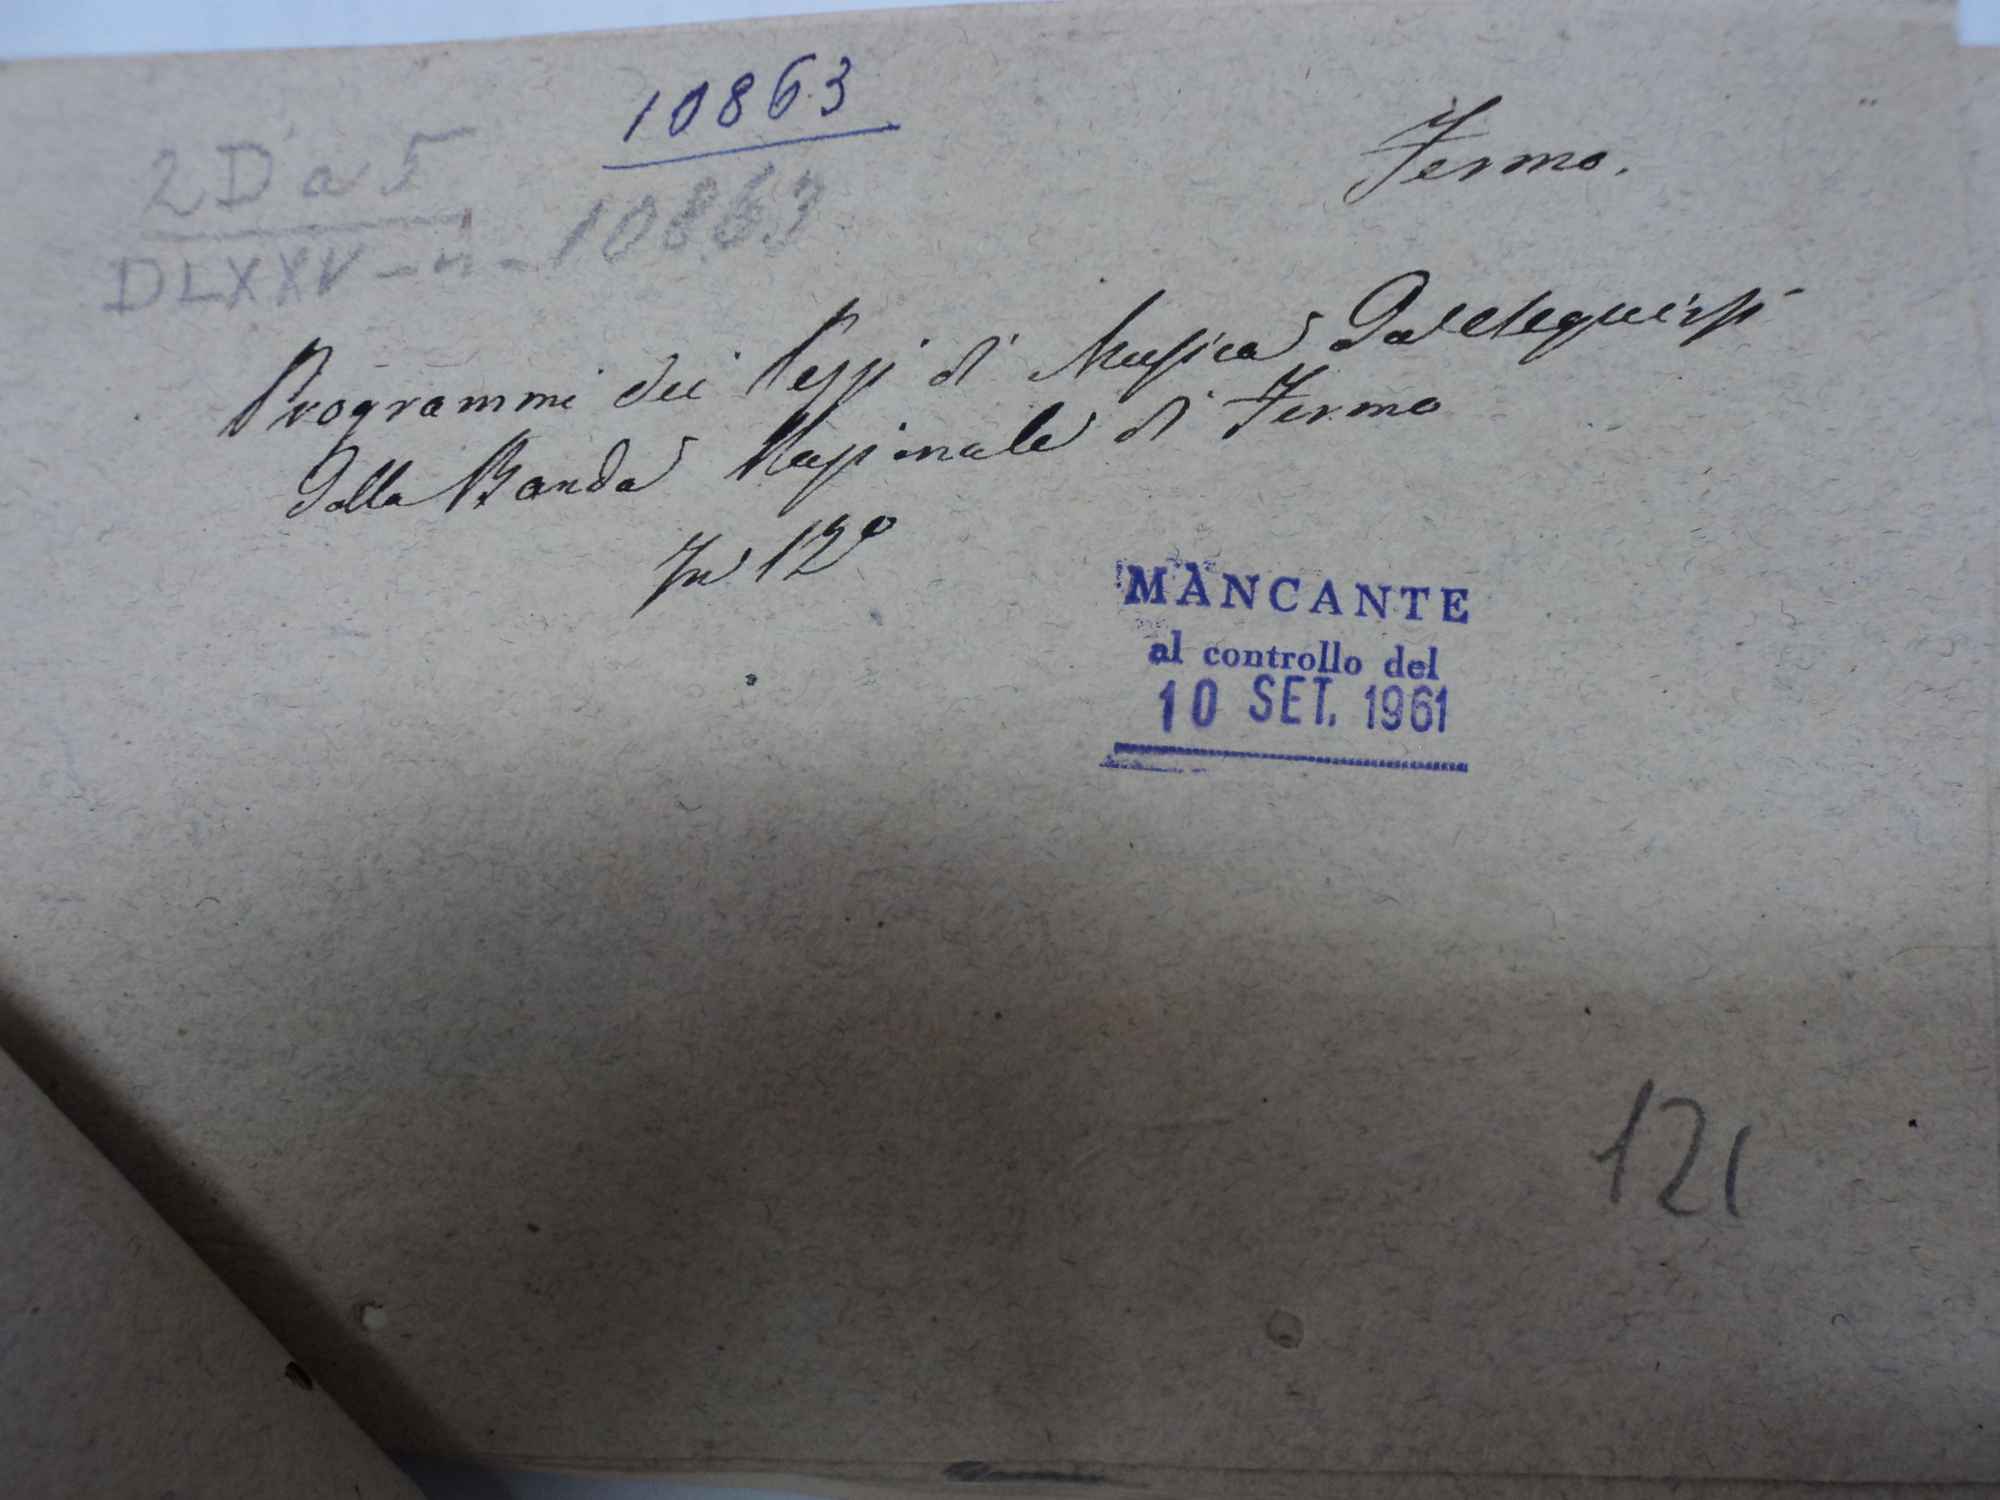 10863
Fermo.
2 D a 5
DLXXV - n - 10863
Programmi dei Pezzi di Musica da eseguirsi
dalla Banda Nazionale di Fermo
In 12º
MANCANTE
al controllo del
10 SET. 1961
121